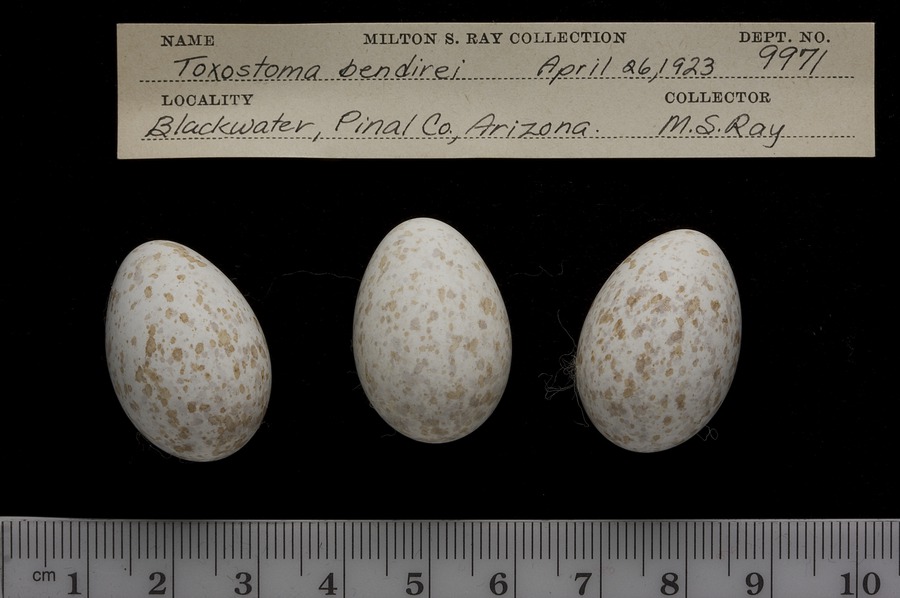 NAME MILTON S. RAY COLLECTION DEPT. NO.
Toxostoma bendirei April 26, 1923 9971
LOCALITY COLLECTOR
Blackwater, Pinal Co., Arizona. M.S. Ray
cm 1 2 3 4 5 6 7 8 9 10